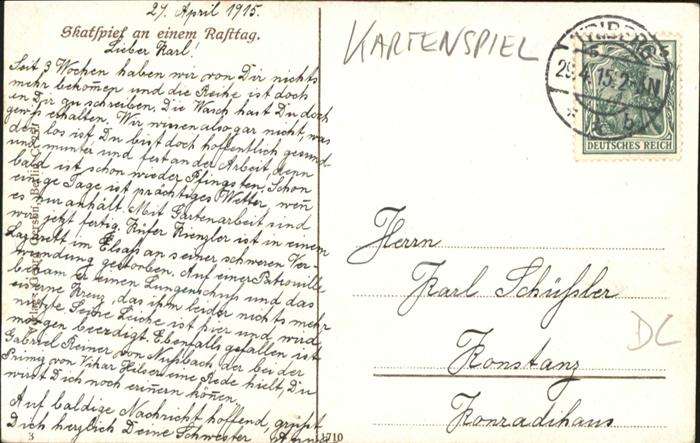 27. April 1915.
Skatspiel an einem Rasttag.
Lieber Karl!
Seit 3 Wochen haben wir von Dir nichts
mehr bekom̅en und die Reihe ist doch
an Dir zu schreiben. Die Wäsch hast Du doch
gewiß erhalten. Wir wissen also gar nicht, was
der los ist. Du bist doch hoffentlich gesund
und munter und fest an der Arbeit, denn
bald ist schon wieder Pfingsten. Schon
einige Tage ist prächtiges Wetter, wen̅
es nur anhält. Mit Gartenarbeit sind
wir jetzt fertig. Küfer Kienzler ist in einem
Lazarett im Elsaß an seiner schweren Ver
wundung gestorben. Auf einer Patrouille
bekam er einen Lungenschuß und das
eiserne Kreuz, das ihm leider nichts mehr
nützte. Seine Leiche ist hier und wird
morgen beerdigt. Ebenfalls gefallen ist
Gabriel Reiner von Nußbach, der bei der
Primiz von Vikar eine Rede hielt, Du
wirst Dich noch erin̅ern kön̅en.
Auf baldige Nachricht hoffend, grüßt
Dich herzlich Deine Schwester
3
1710
KARTENSPIEL
TRIBERG
29.4.15.2-3N
* a b
DEUTSCHES REICH
Herrn
Karl Schüßler
Konstanz
Konradihaus
DC